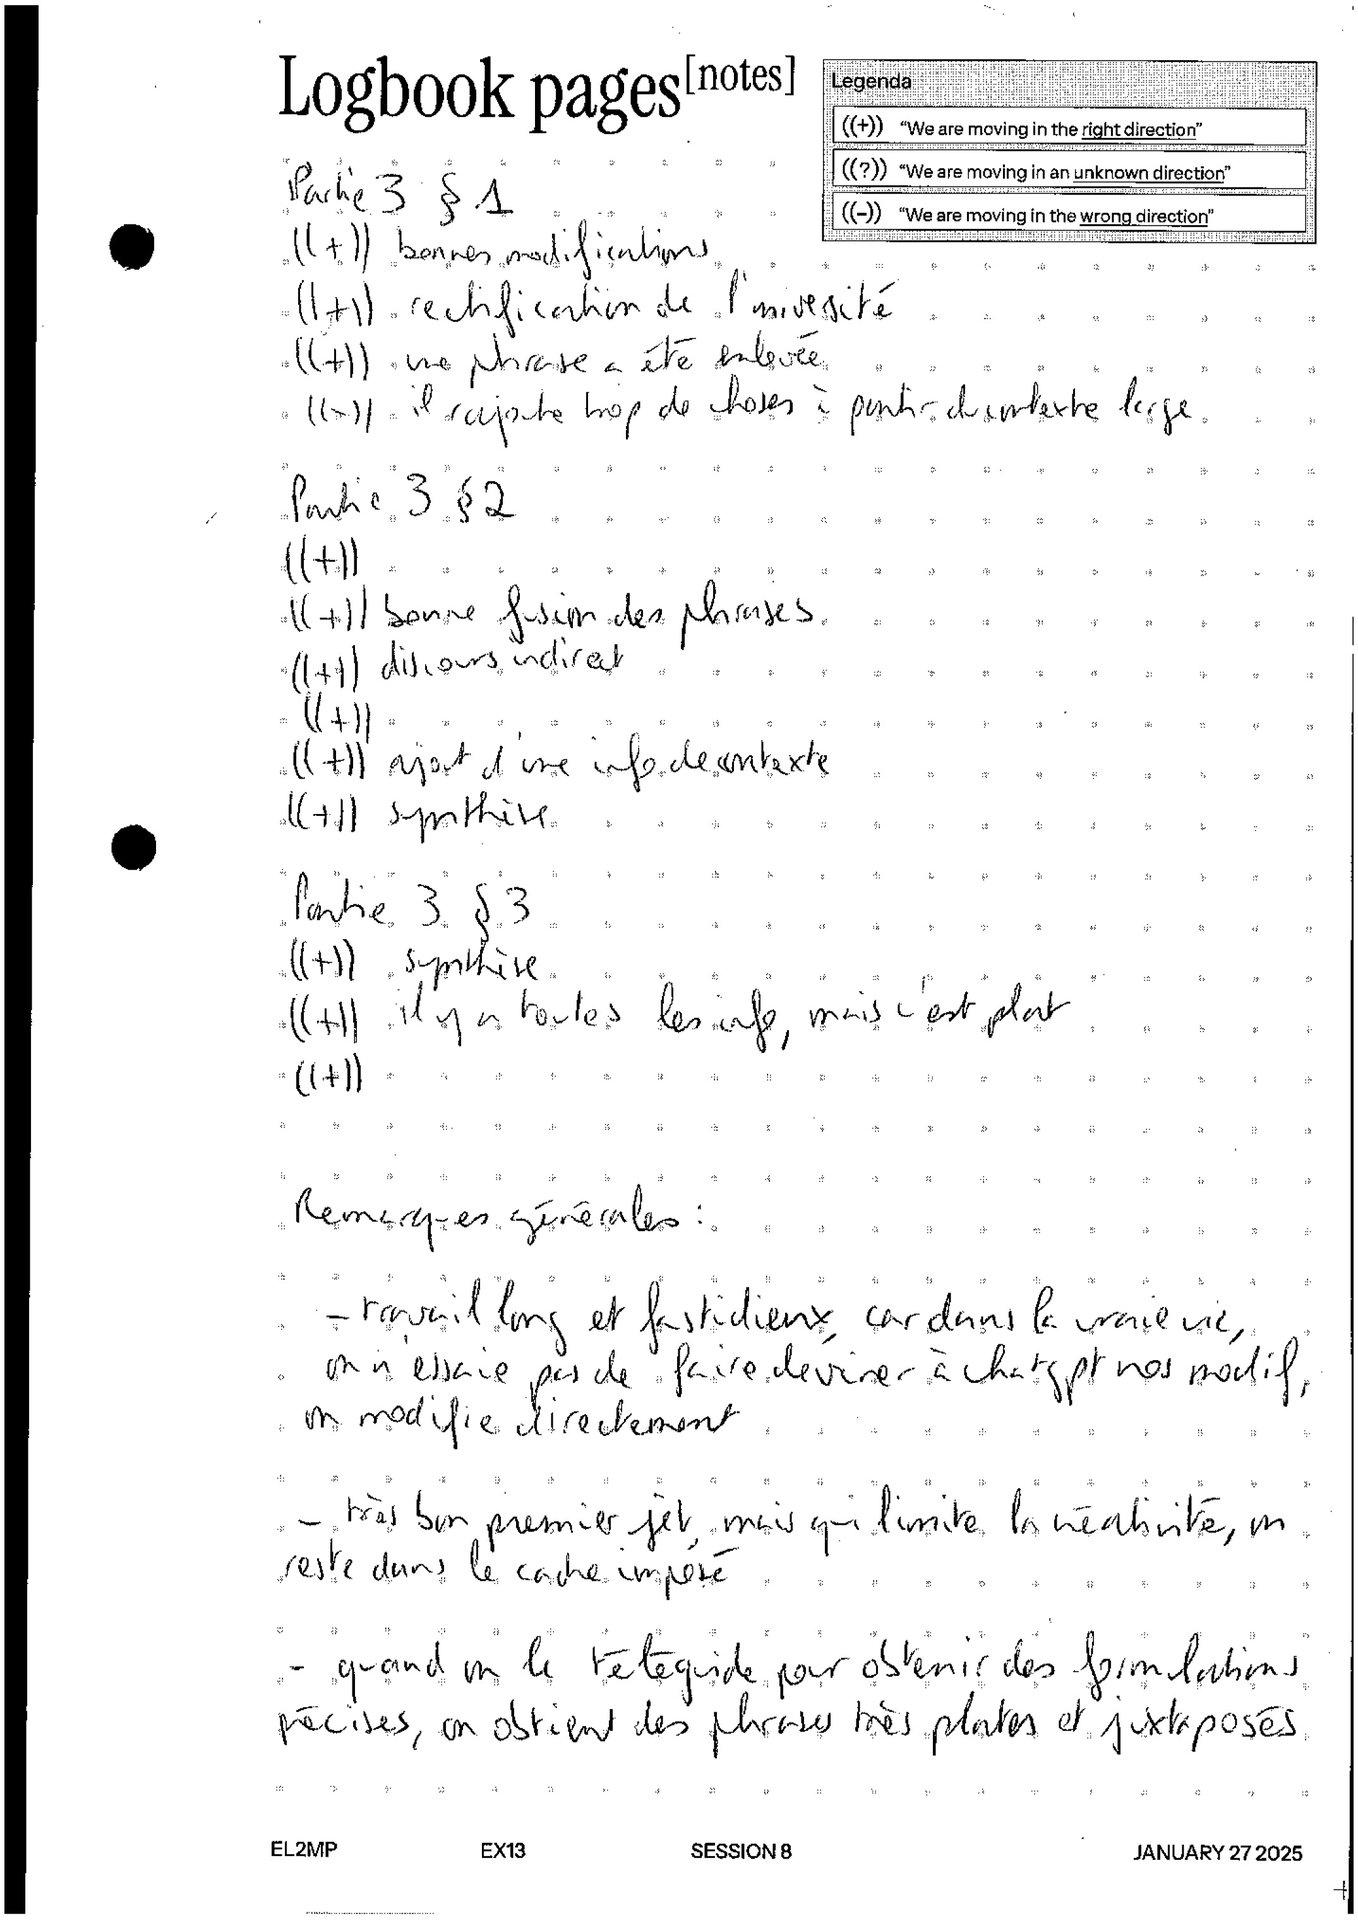 Logbook pages[notes]
Legenda
((+)) “We are moving in the right direction”
((?)) “We are moving in an unknown direction”
((–)) “We are moving in the wrong direction”
Partie 3 § 1
((+)) bonnes modifications
((+)) rectification de l'université
((+)) une phrase a été enlevée
((-)) il rajoute trop de choses à partir du contexte large
Partie 3 § 2
((+))
((+)) bonne fusion des phrases
((+)) discours indirect
((+))
((+)) ajout d'une info de contexte
((+)) synthèse
Partie 3 § 3
((+)) synthèse
((+)) il y a toutes les info, mais c'est plat
((+))
Remarques générales :
- travail long et fastidieux, car dans la vraie vie,
on n'essaie pas de faire deviner à chatgpt nos modif,
on modifie directement
- très bon premier jet, mais qui limite la créativité, on
reste dans le cadre imposé
- quand on le téléguide pour obtenir des formulations
précises, on obtient des phrases très plates et juxtaposés
EL2MP EX13 SESSION 8 JANUARY 27 2025